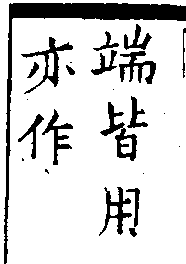 端皆用
亦作